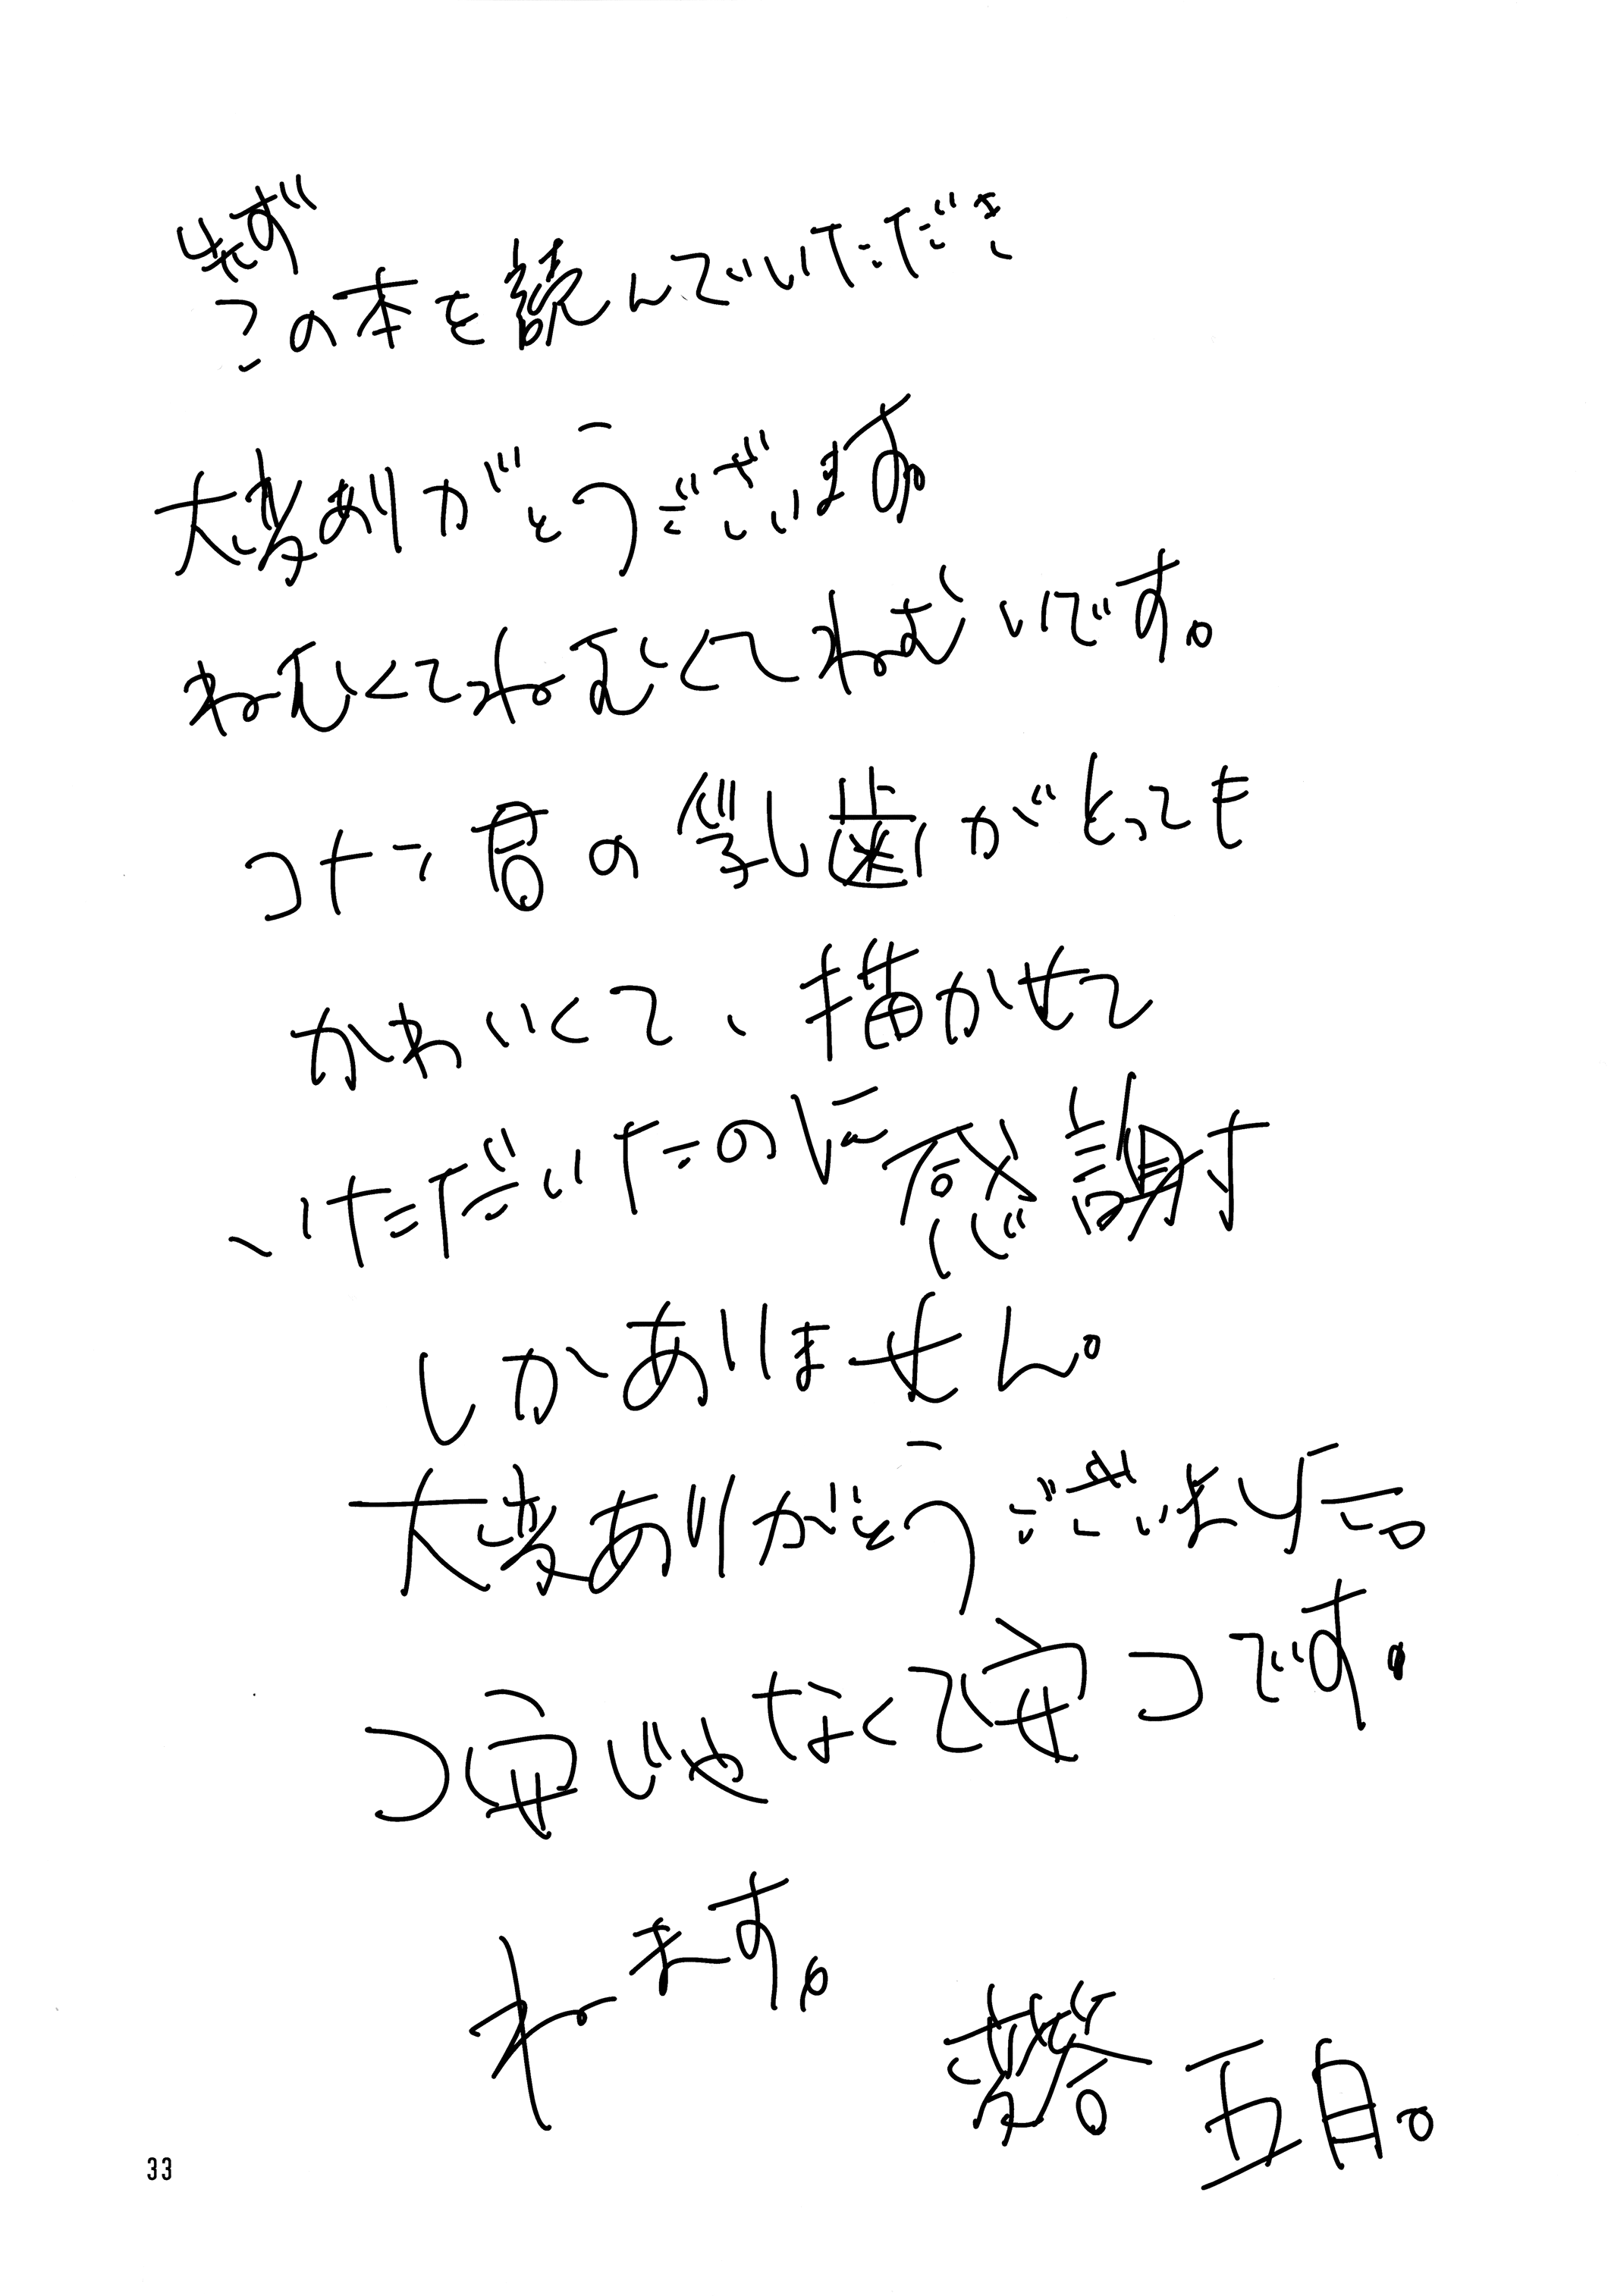 先ず
この本を読んでいただき
大変ありがとうございます。
ねむくてねむくてねむいです。
コナン君の乳歯がとっても
かわいくて、描かせて
いただいたのに感謝
しかありません。
大変ありがとうございました。
コ安じゃなくて安コです。
ねます。
五目。
33